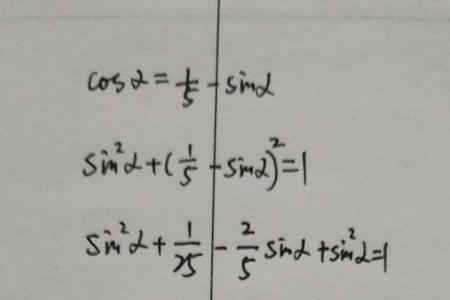 cos α = 1/5 - sin α
sin² α + (1/5 - sin α)² = 1
sin² α + 1/25 - 2/5 sin α + sin² α = 1